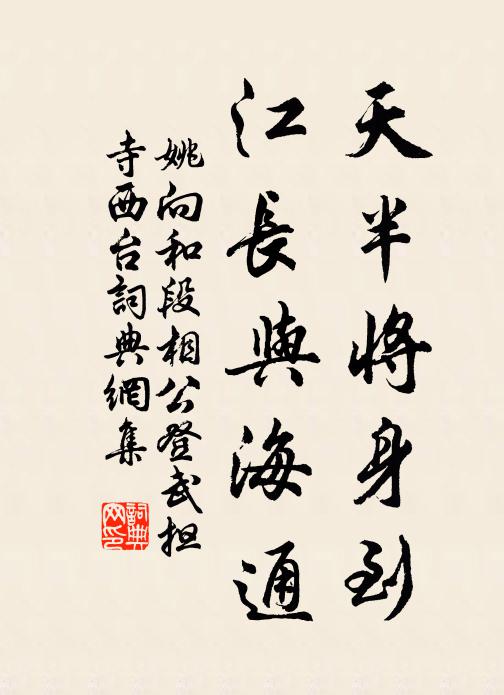 天半將身到
江長與海通
姚向和段相公登武担
寺西台詞典網集
詞典
网印